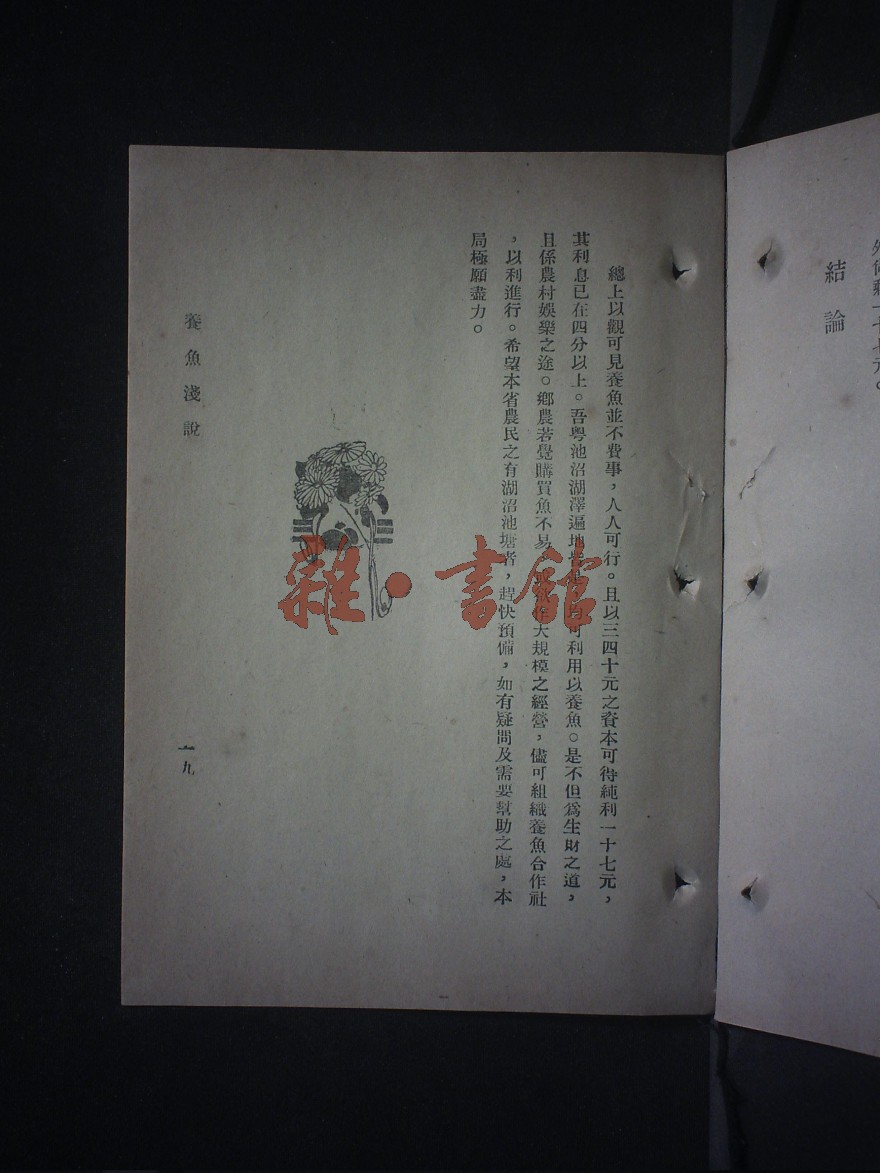 外尚剩一十七元。
結論
總上以觀可見養魚並不費事，人人可行。且以三四十元之資本可待純利一十七元，
其利息已在四分以上。吾粵池沼湖澤遍地皆是，均可利用以養魚。是不但為生財之道，
且係農村娛樂之途。鄉農若覺購買魚不易，大規模之經營，儘可組織養魚合作社
，以利進行。希望本省農民之有湖沼池塘者，趕快預備，如有疑問及需要幫助之處，本
局極願盡力。
養魚淺說
一九
雜·書館